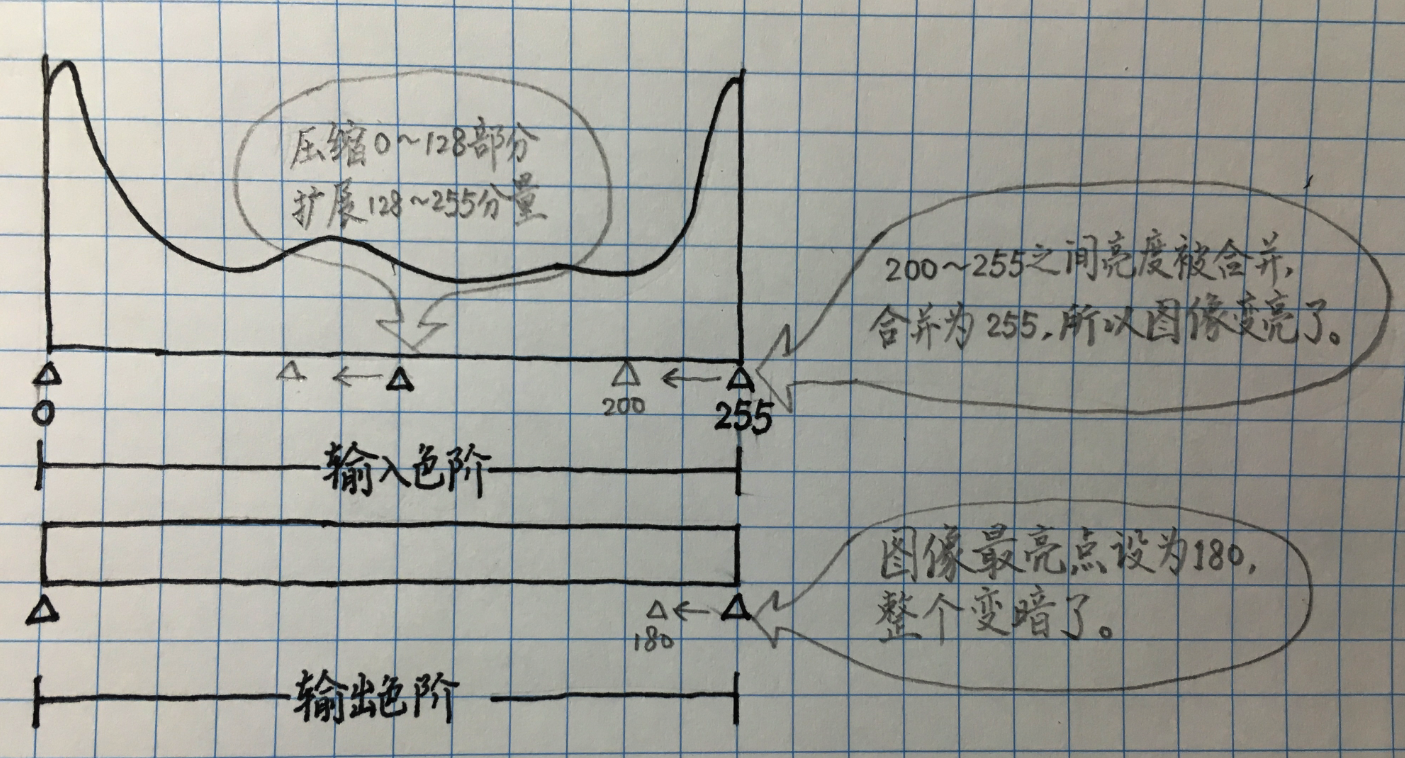 压缩0~128部分
扩展128~255分量
200~255之间亮度被合并,
合并为255,所以图像变亮了。
200
0
255
输入色阶
图像最亮点设为180,
整个变暗了。
180
输出色阶